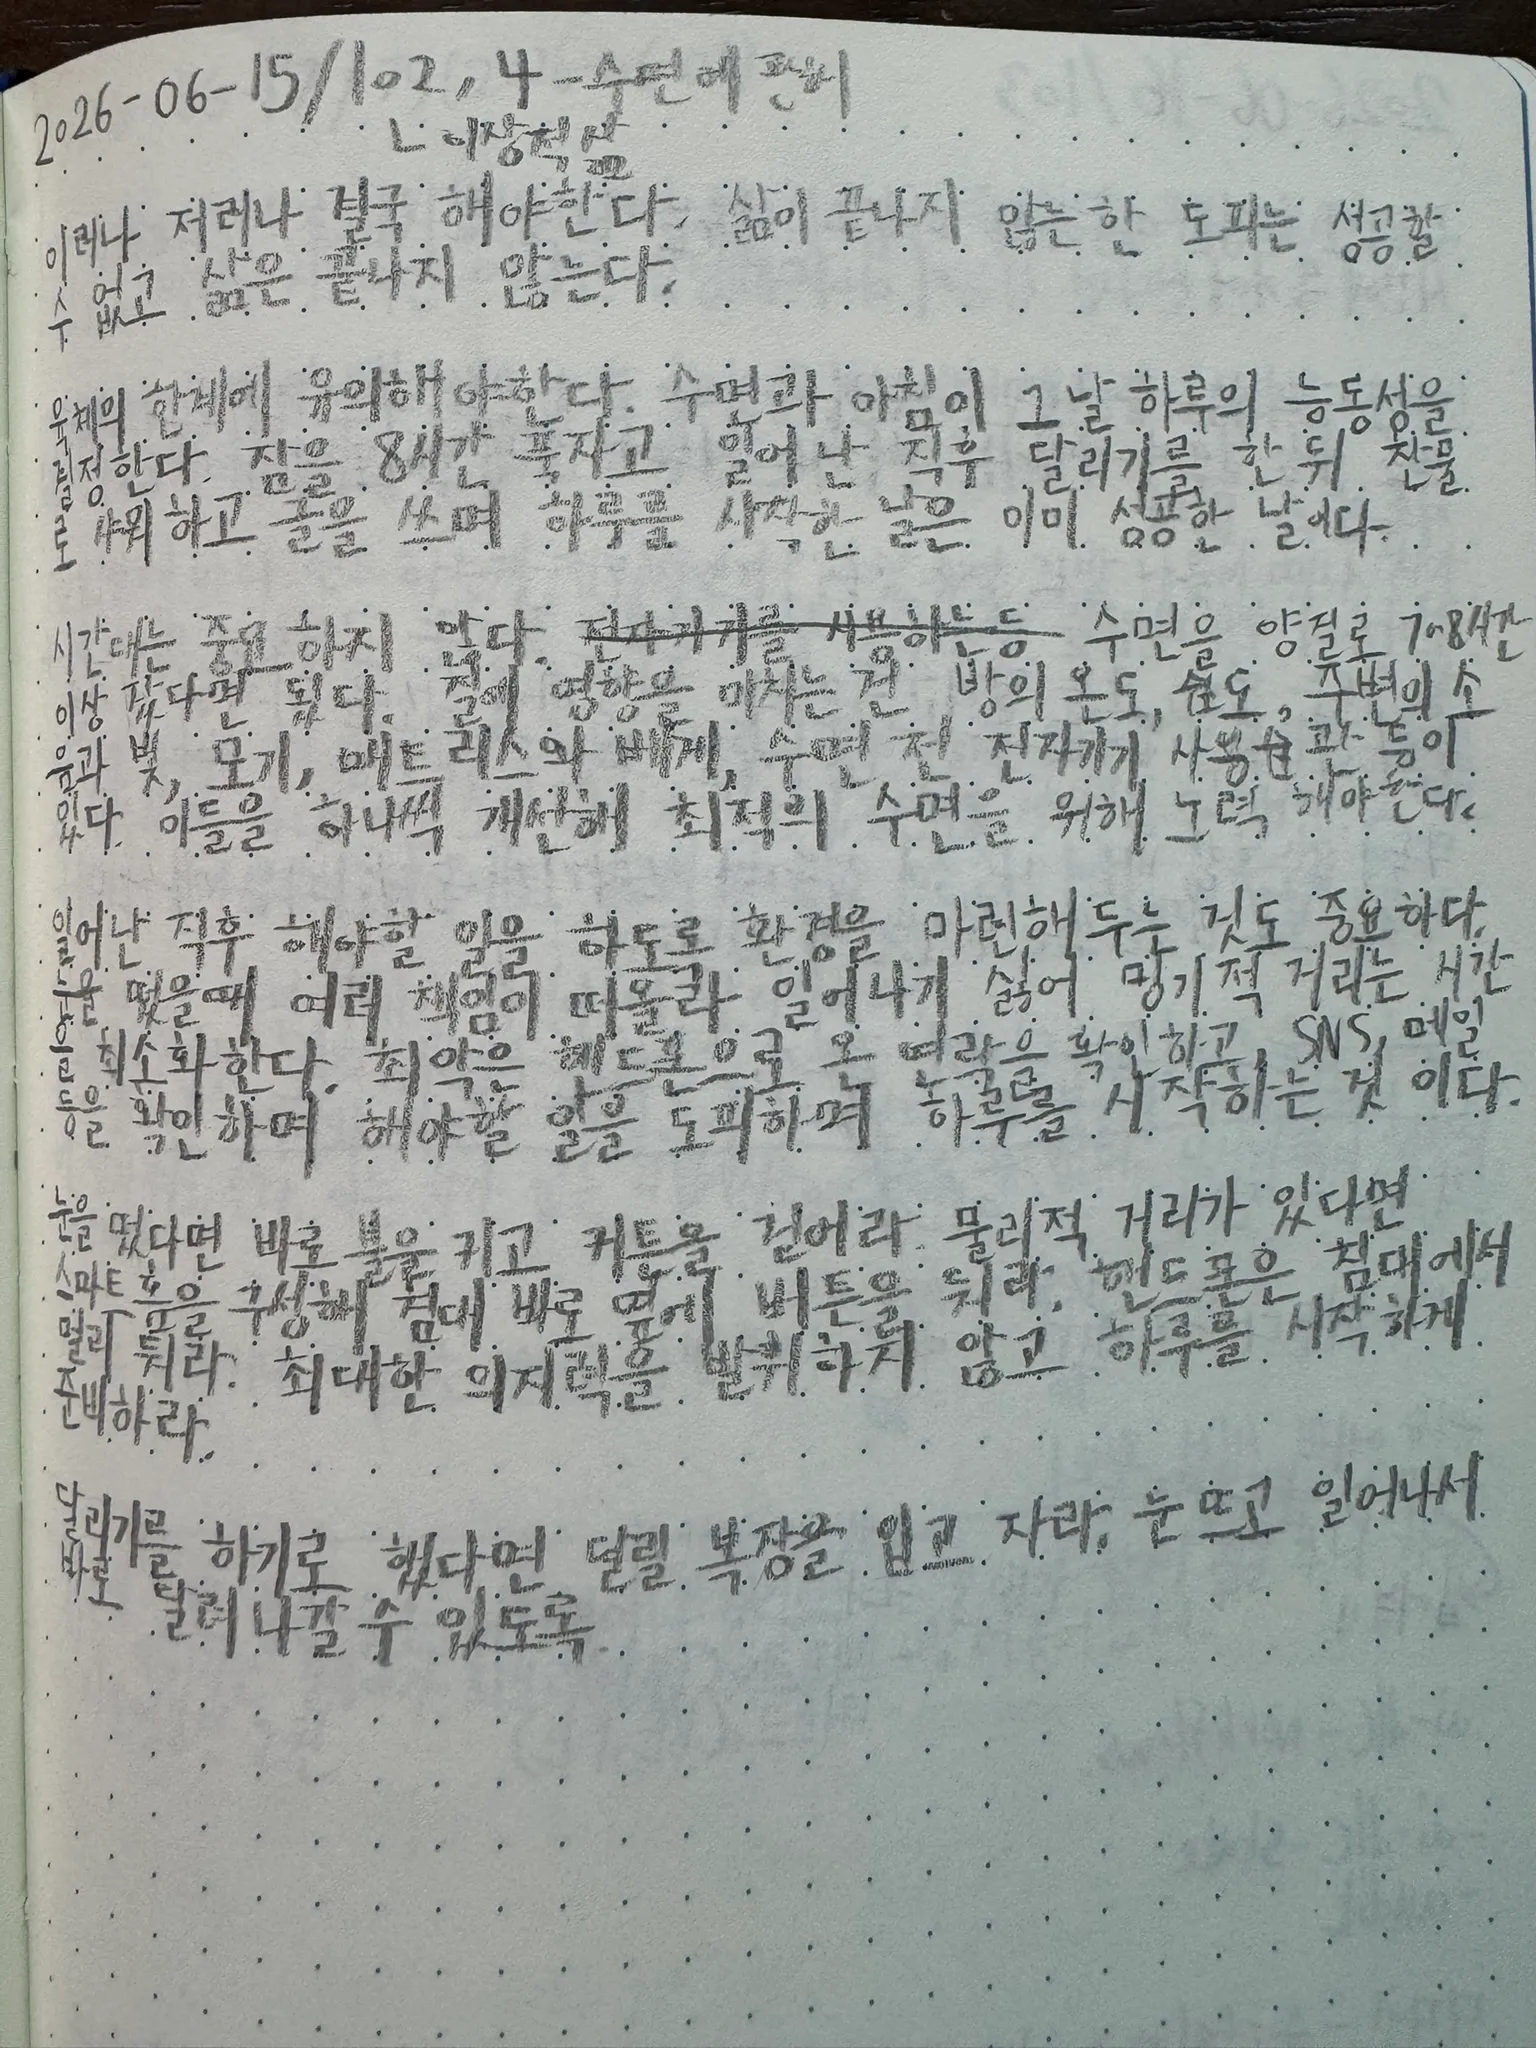 2026-06-15/102, 4 - 수면에 관하
ㄴ 이상적 삶
이러나 저러나 결국 해야한다. 삶이 끝나지 않는한 도피는 성공할
수 없고 삶은 끝나지 않는다.
육체의 한계에 유의해야한다. 수면과 아침이 그날 하루의 능동성을
결정한다. 잠을 8시간 푹자고 일어난 직후 달리기를 한 뒤 찬물
로 샤워하고 글을 쓰며 하루를 시작한 날은 이미 성공한 날이다.
시간대는 중요하지 않다. 전자기기를 사용하는등 수면을 양질로 7~8시간
이상 잤다면 됐다. 질에 영향을 미치는 건 방의 온도, 습도, 주변의 소
음과 빛, 모기, 매트리스와 베게, 수면 전 전자기기 사용습관 등이
있다. 이들을 하나씩 개선해 최적의 수면을 위해 노력해야한다.
일어난 직후 해야할 일을 하도록 환경을 마련해두는 것도 중요하다.
눈을 떴을때 여러 책임이 떠올라 일어나기 싫어 밍기적 거리는 시간
을 최소화한다. 최악은 핸드폰으로 온 연락을 확인하고, SNS, 메일
등을 확인하며 해야할 일을 도피하며 하루를 시작하는 것 이다.
눈을 떴다면 바로 불을 키고 커튼을 걷어라. 물리적 거리가 있다면
스마트 홈을 구성해 침대 바로 옆에 버튼을 둬라. 핸드폰은 침대에서
멀리 둬라. 최대한 의지력을 발휘하지 않고 하루를 시작하게
준비하라.
달리기를 하기로 했다면 달릴 복장을 입고 자라. 눈 뜨고 일어나서
바로 달려나갈 수 있도록.